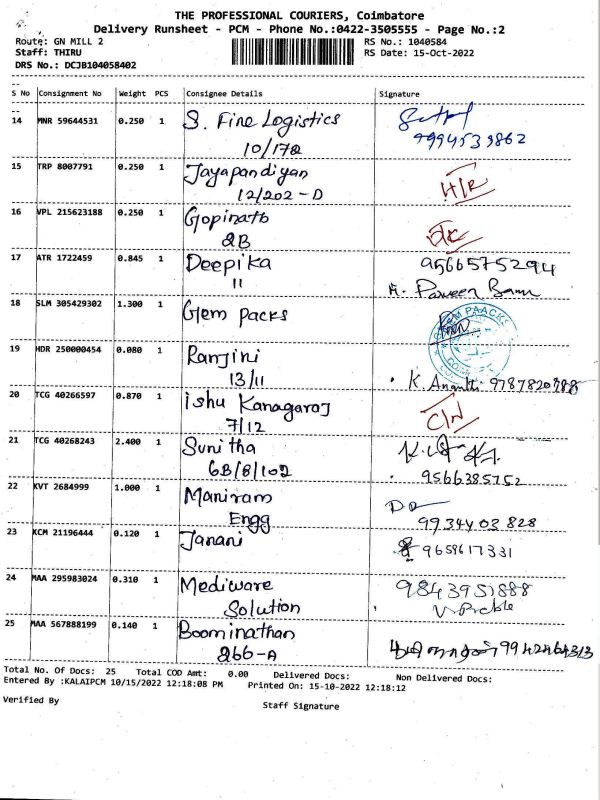 THE PROFESSIONAL COURIERS, Coimbatore
Delivery Runsheet - PCM - Phone No.:0422-3505555 - Page No.:2
Route: GN MILL 2
RS No.: 1040584
Staff: THIRU
RS Date: 15-Oct-2022
DRS No.: DCJB104058402
S No Consignment No Weight PCS Consignee Details Signature
14 MNR 59644531 0.250 1 S. Fine Logistics
10/172 9994539862
15 TRP 8007791 0.250 1 Jayapandiyan
12/202-D H/R
16 VPL 215623188 0.250 1 Gopinath
2B
17 ATR 1722459 0.845 1 Deepika 9566575294
11 A. Parveen Banu
18 SLM 305429302 1.300 1 Gem Packs
19 HDR 250000454 0.080 1 Ranjini
13/11 K. Ananthi
20 TCG 40266597 0.870 1 ishu Kanagaraj
7/12
21 TCG 40268243 2.400 1 Sunitha
6B/8/102 9566385752
22 KVT 2684999 1.000 1 Maniram
Engg 9934403828
23 KCM 21196444 0.120 1 Janani 9659617331
24 MAA 295983024 0.310 1 Mediware 9843951888
Solution
25 MAA 567888199 0.140 1 Boominathan
266-A 9942464313
Total No. Of Docs: 25 Total COD Amt: 0.00 Delivered Docs: Non Delivered Docs:
Entered By :KALAIPCM 10/15/2022 12:18:08 PM Printed On: 15-10-2022 12:18:12
Verified By
Staff Signature